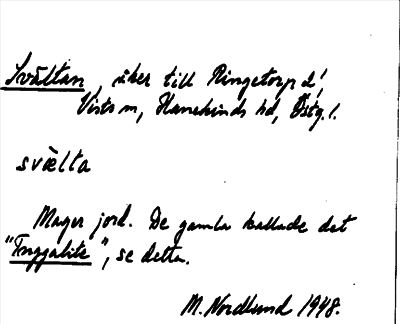 Svältan, åker till Ringetorp d!,
Vists sn, Hanekinds hd, Östg. l.
svälta
Mager jord. De gamla kallade det
"Tryggalite", se detta.
M. Nordlund 1948.